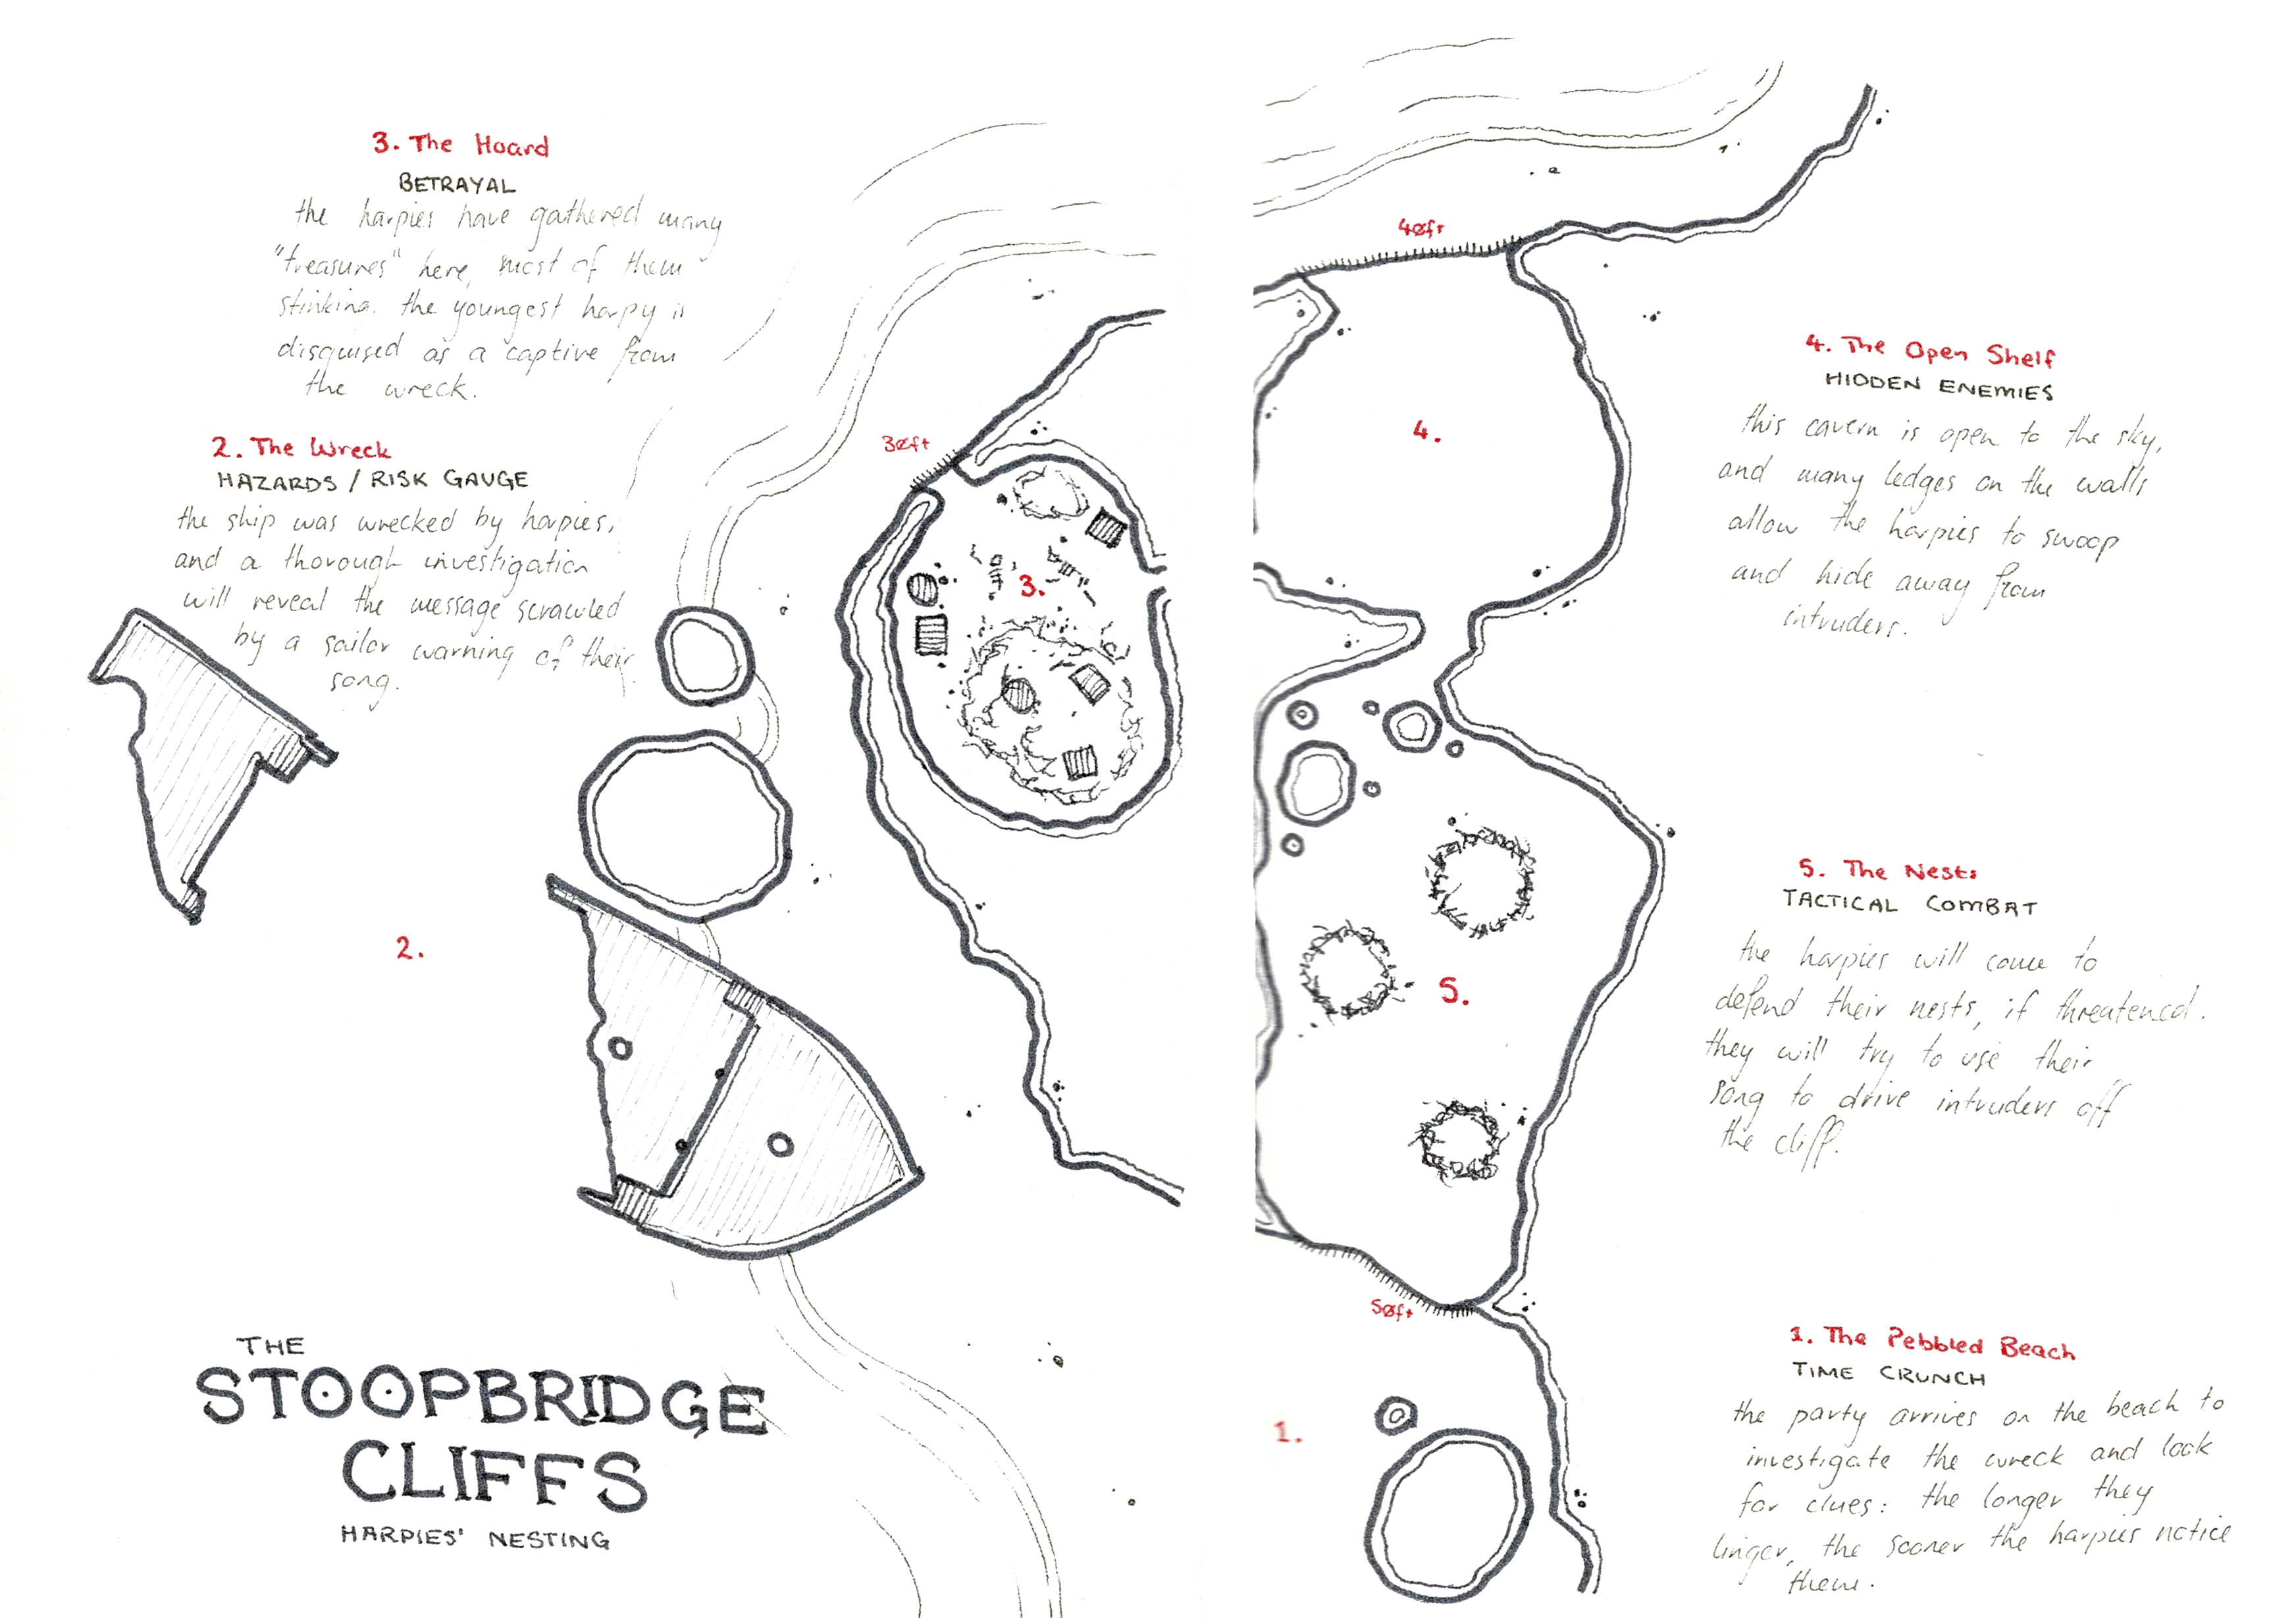 3. The Hoard
BETRAYAL
the harpies have gathered many
"treasures" here, most of them
stinking. the youngest harpy is
disguised as a captive from
the wreck.
2. The Wreck
HAZARDS / RISK GAUGE
the ship was wrecked by harpies,
and a thorough investigation
will reveal the message scrawled
by a sailor warning of their
song.
2.
30ft
3.
THE
STOOPBRIDGE
CLIFFS
HARPIES' NESTING
40ft
4.
4. The Open Shelf
HIDDEN ENEMIES
this cavern is open to the sky,
and many ledges on the walls
allow the harpies to swoop
and hide away from
intruders.
5.
5. The Nests
TACTICAL COMBAT
the harpies will come to
defend their nests, if threatened.
they will try to use their
song to drive intruders off
the cliff.
50ft
1.
1. The Pebbled Beach
TIME CRUNCH
the party arrives on the beach to
investigate the wreck and look
for clues: the longer they
linger, the sooner the harpies notice
them.